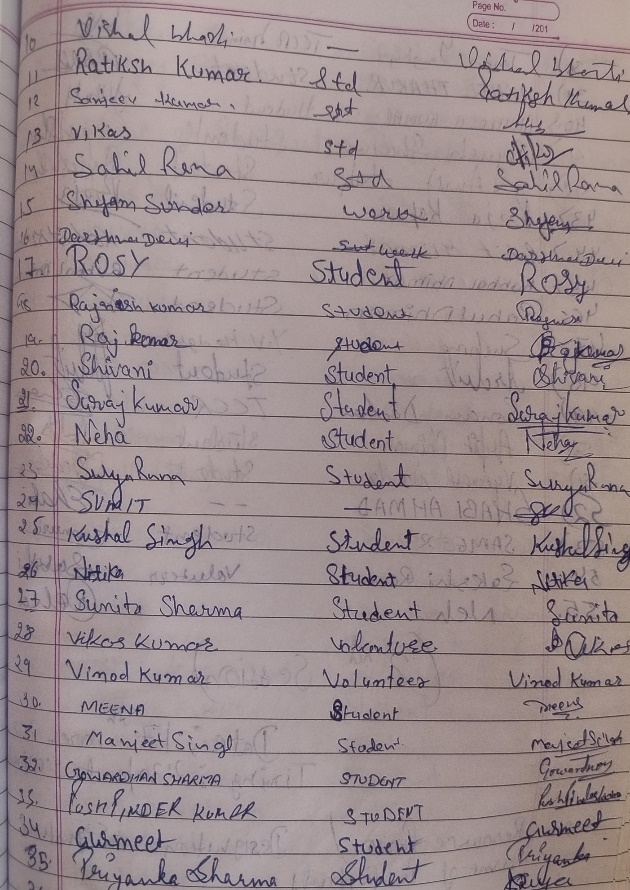 Page No.
Date: / /201
10 Vishal bharti — Vishal bharti
11 Ratiksh Kumar. Std Ratiksh Kumar
12 Sanjeev Kumar. Std
13 Vikas Std
14 Sahil Rana Std Sahil Rana
15 Shyam Sunder work Shyam
16 Darshna Devi work Darshna Devi
17 ROSY Student ROSY
18 Rajnish kumar Student Rajnish
19. Raj kumar student Raj kumar
20. Shivani Student Shivani
21. Suraj Kumar Student Suraj kumar
22. Neha Student Neha
23. Surya Rana Student Surya Rana
24 SUMIT —
25 Kushal Singh Student Kushal Sing
26 Nitika Student Nitika
27 Sunita Sharma Student Sunita
28 Vikas Kumar Volantuse Vikas
29 Vinod Kumar Volunteer Vinod Kumar
30. MEENA Student Meena
31 Manjeet Singl Student Manjeet Singh
32. GOWARDHAN SHARMA STUDENT Gowardhan
33. PUSHPINDER KUMAR STUDENT
34. Gurmeet Student Gurmeet
35. Priyanka Sharma Student Priyanka